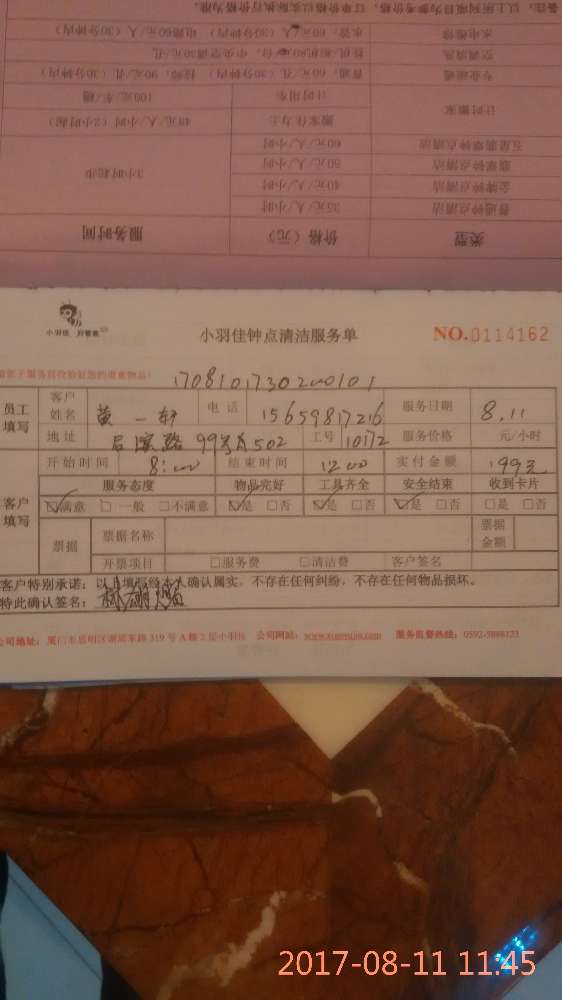 备注：以上所列项目为参考价格，订单价格以实际执行价格为准。
水电维修 水管，60元/人（30分钟内） 电路60元/人（30分钟内）
空调清洗
专业疏通 普通，60元/孔（30分钟） 特殊，90元/孔（30分钟）
计时搬家 计时用车 100元/车/趟
搬家体力工 40元/人/小时（2小时起）
五星翡翠钟点清洁 60元/人/小时
翡翠钟点清洁 50元/人/小时
金牌钟点清洁 40元/人/小时 3小时起步
普通钟点清洁 35元/人/小时
类型 价格（元） 服务时间
小羽佳 好管家
小羽佳钟点清洁服务单 NO.0114162
170810173020010 1
员工填写 客户姓名 黄一轩 电话 15659817216 服务日期 8.11
地址 99号A502 工号 10172 服务价格 元/小时
开始时间 8:00 结束时间 12:00 实付金额 199元
客户填写 服务态度 物品完好 工具齐全 安全结束 收到卡片
☑满意 □一般 □不满意 ☑是 □否 ☑是 □否 ☑是 □否 □是 □否
票据 票据名称 票据金额
开票项目 □服务费 □清洁费 客户签名
客户特别承诺：以上填报经本人确认属实，不存在任何纠纷，不存在任何物品损坏。
特此确认签名：
公司地址：厦门市思明区湖滨东路319号A楼2层小羽佳 公司网站： 服务监督热线：0592-5888123
2017-08-11 11:45